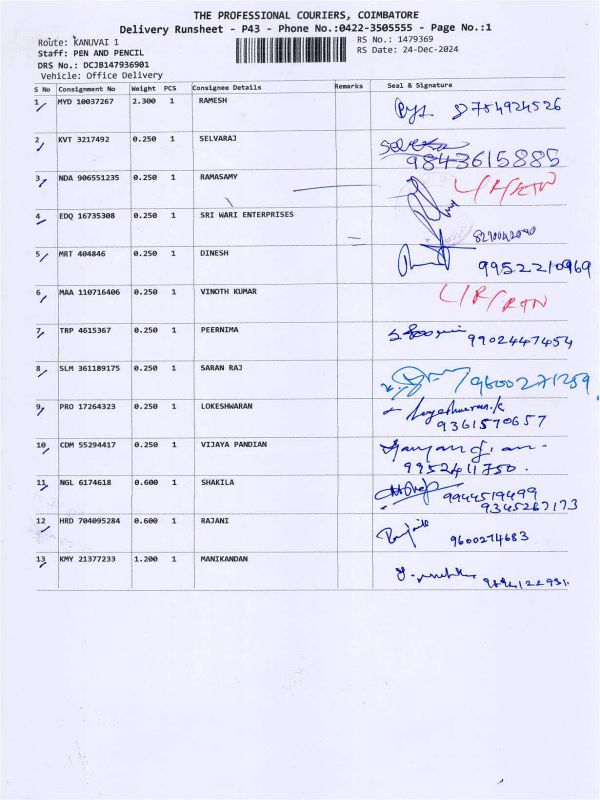 THE PROFESSIONAL COURIERS, COIMBATORE
Delivery Runsheet - P43 - Phone No.:0422-3505555 - Page No.:1
Route: KANUVAI 1
RS No.: 1479369
Staff: PEN AND PENCIL
RS Date: 24-Dec-2024
DRS No.: DCJB147936901
Vehicle: Office Delivery
S No Consignment No Weight PCS Consignee Details Remarks Seal & Signature
1 MYD 10037267 2.300 1 RAMESH 8754924526
2 KVT 3217492 0.250 1 SELVARAJ
9843615885
3 NDA 906551235 0.250 1 RAMASAMY L/R/RTN
4 EDQ 16735308 0.250 1 SRI WARI ENTERPRISES
5 MRT 404846 0.250 1 DINESH 9952210969
6 MAA 110716406 0.250 1 VINOTH KUMAR L/R/RTN
7 TRP 4615367 0.250 1 PEERNIMA 9902447454
8 SLM 361189175 0.250 1 SARAN RAJ 9600271259
9 PRO 17264323 0.250 1 LOKESHWARAN Logeshwaran.k
9361570657
10 CDM 55294417 0.250 1 VIJAYA PANDIAN
9952411750.
11 NGL 6174618 0.600 1 SHAKILA 9944519499
9345267173
12 HRD 704095284 0.600 1 RAJANI 9600274683
13 KMY 21377233 1.200 1 MANIKANDAN